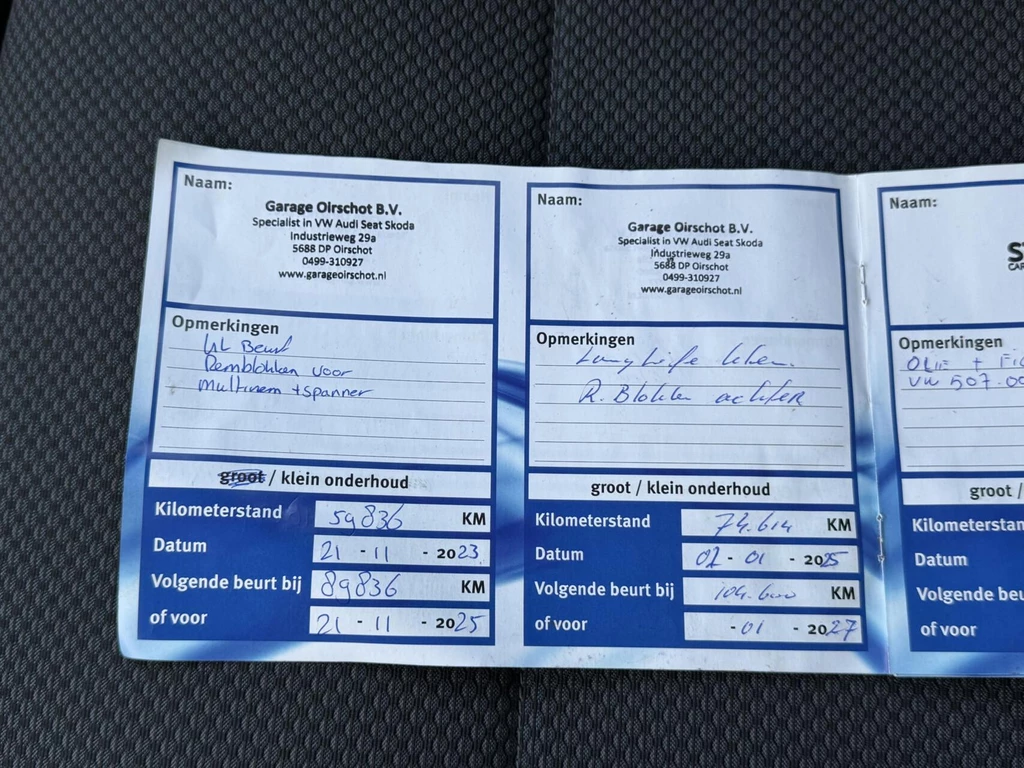 Naam:
Garage Oirschot B.V.
Specialist in VW Audi Seat Skoda
Industrieweg 29a
5688 DP Oirschot
0499-310927
www.garageoirschot.nl
Opmerkingen
Beurt
Remblokken voor
multiriem + spanner
groot / klein onderhoud
Kilometerstand 59836 KM
Datum 21 - 11 - 2023
Volgende beurt bij 89836 KM
of voor 21 - 11 - 2025
Naam:
Garage Oirschot B.V.
Specialist in VW Audi Seat Skoda
Industrieweg 29a
5688 DP Oirschot
0499-310927
www.garageoirschot.nl
Opmerkingen
Longlife
R. Blokken achter
groot / klein onderhoud
Kilometerstand 74.614 KM
Datum 02 - 01 - 2025
Volgende beurt bij 104.600 KM
of voor - 01 - 2027
Naam:
Opmerkingen
OLIE +
VW 507.00
groot /
Kilometerstan
Datum
Volgende beu
of voor